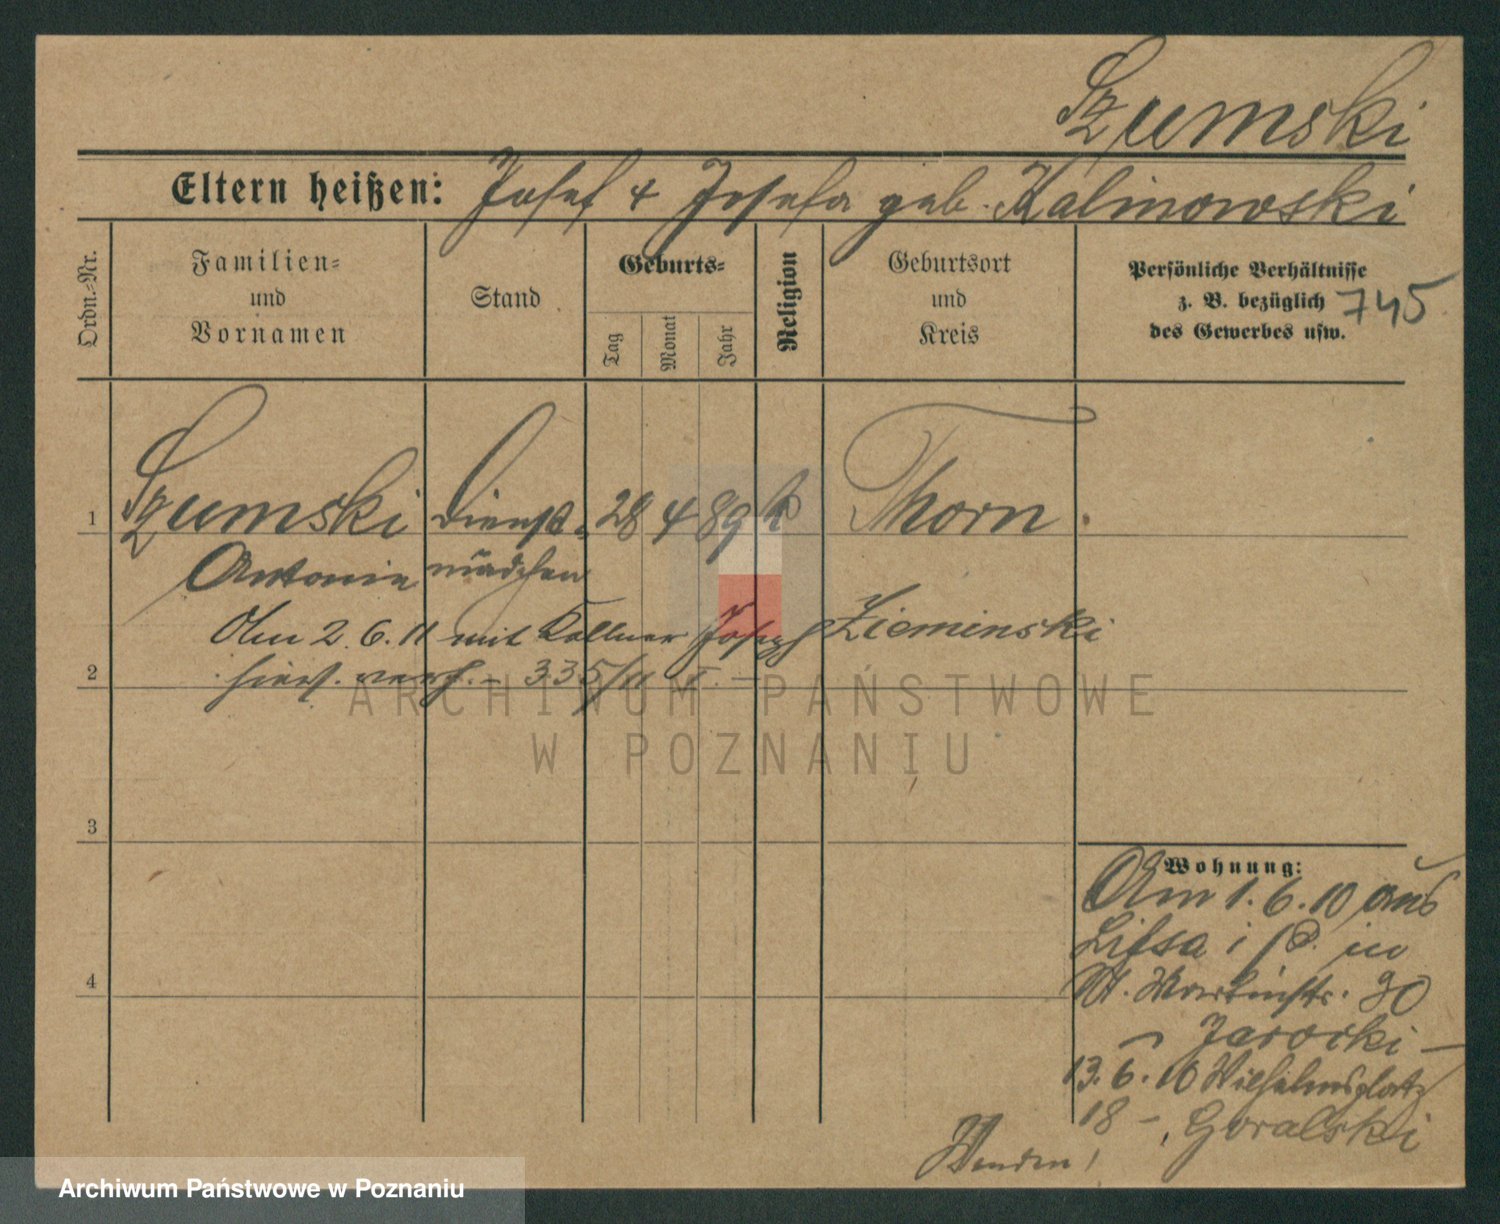 Szumski
Eltern heißen: Josef & Josefa geb. Kalinowski
Ordn.-Nr.
Familien-
und
Vornamen
Stand
Geburts-
Tag
Monat
Jahr
Religion
Geburtsort
und
Kreis
Persönliche Verhältnisse
z. B. bezüglich
des Gewerbes usw.
745
1 Szumski Dienst- 28 4 89 k Thorn
Antonie mädchen
Am 2.6.11 mit Kellner Joseph Zieminski
2 hier verh. - 335/11 I. -
3
4
Wohnung:
Am 1.6.10 aus
Lissa i/P. in
St. Martinstr. 30
Jarocki -
13.6.10 Wilhelmsplatz
18 - Goralski
Wenden!
ARCHIWUM PAŃSTWOWE
W POZNANIU
Archiwum Państwowe w Poznaniu